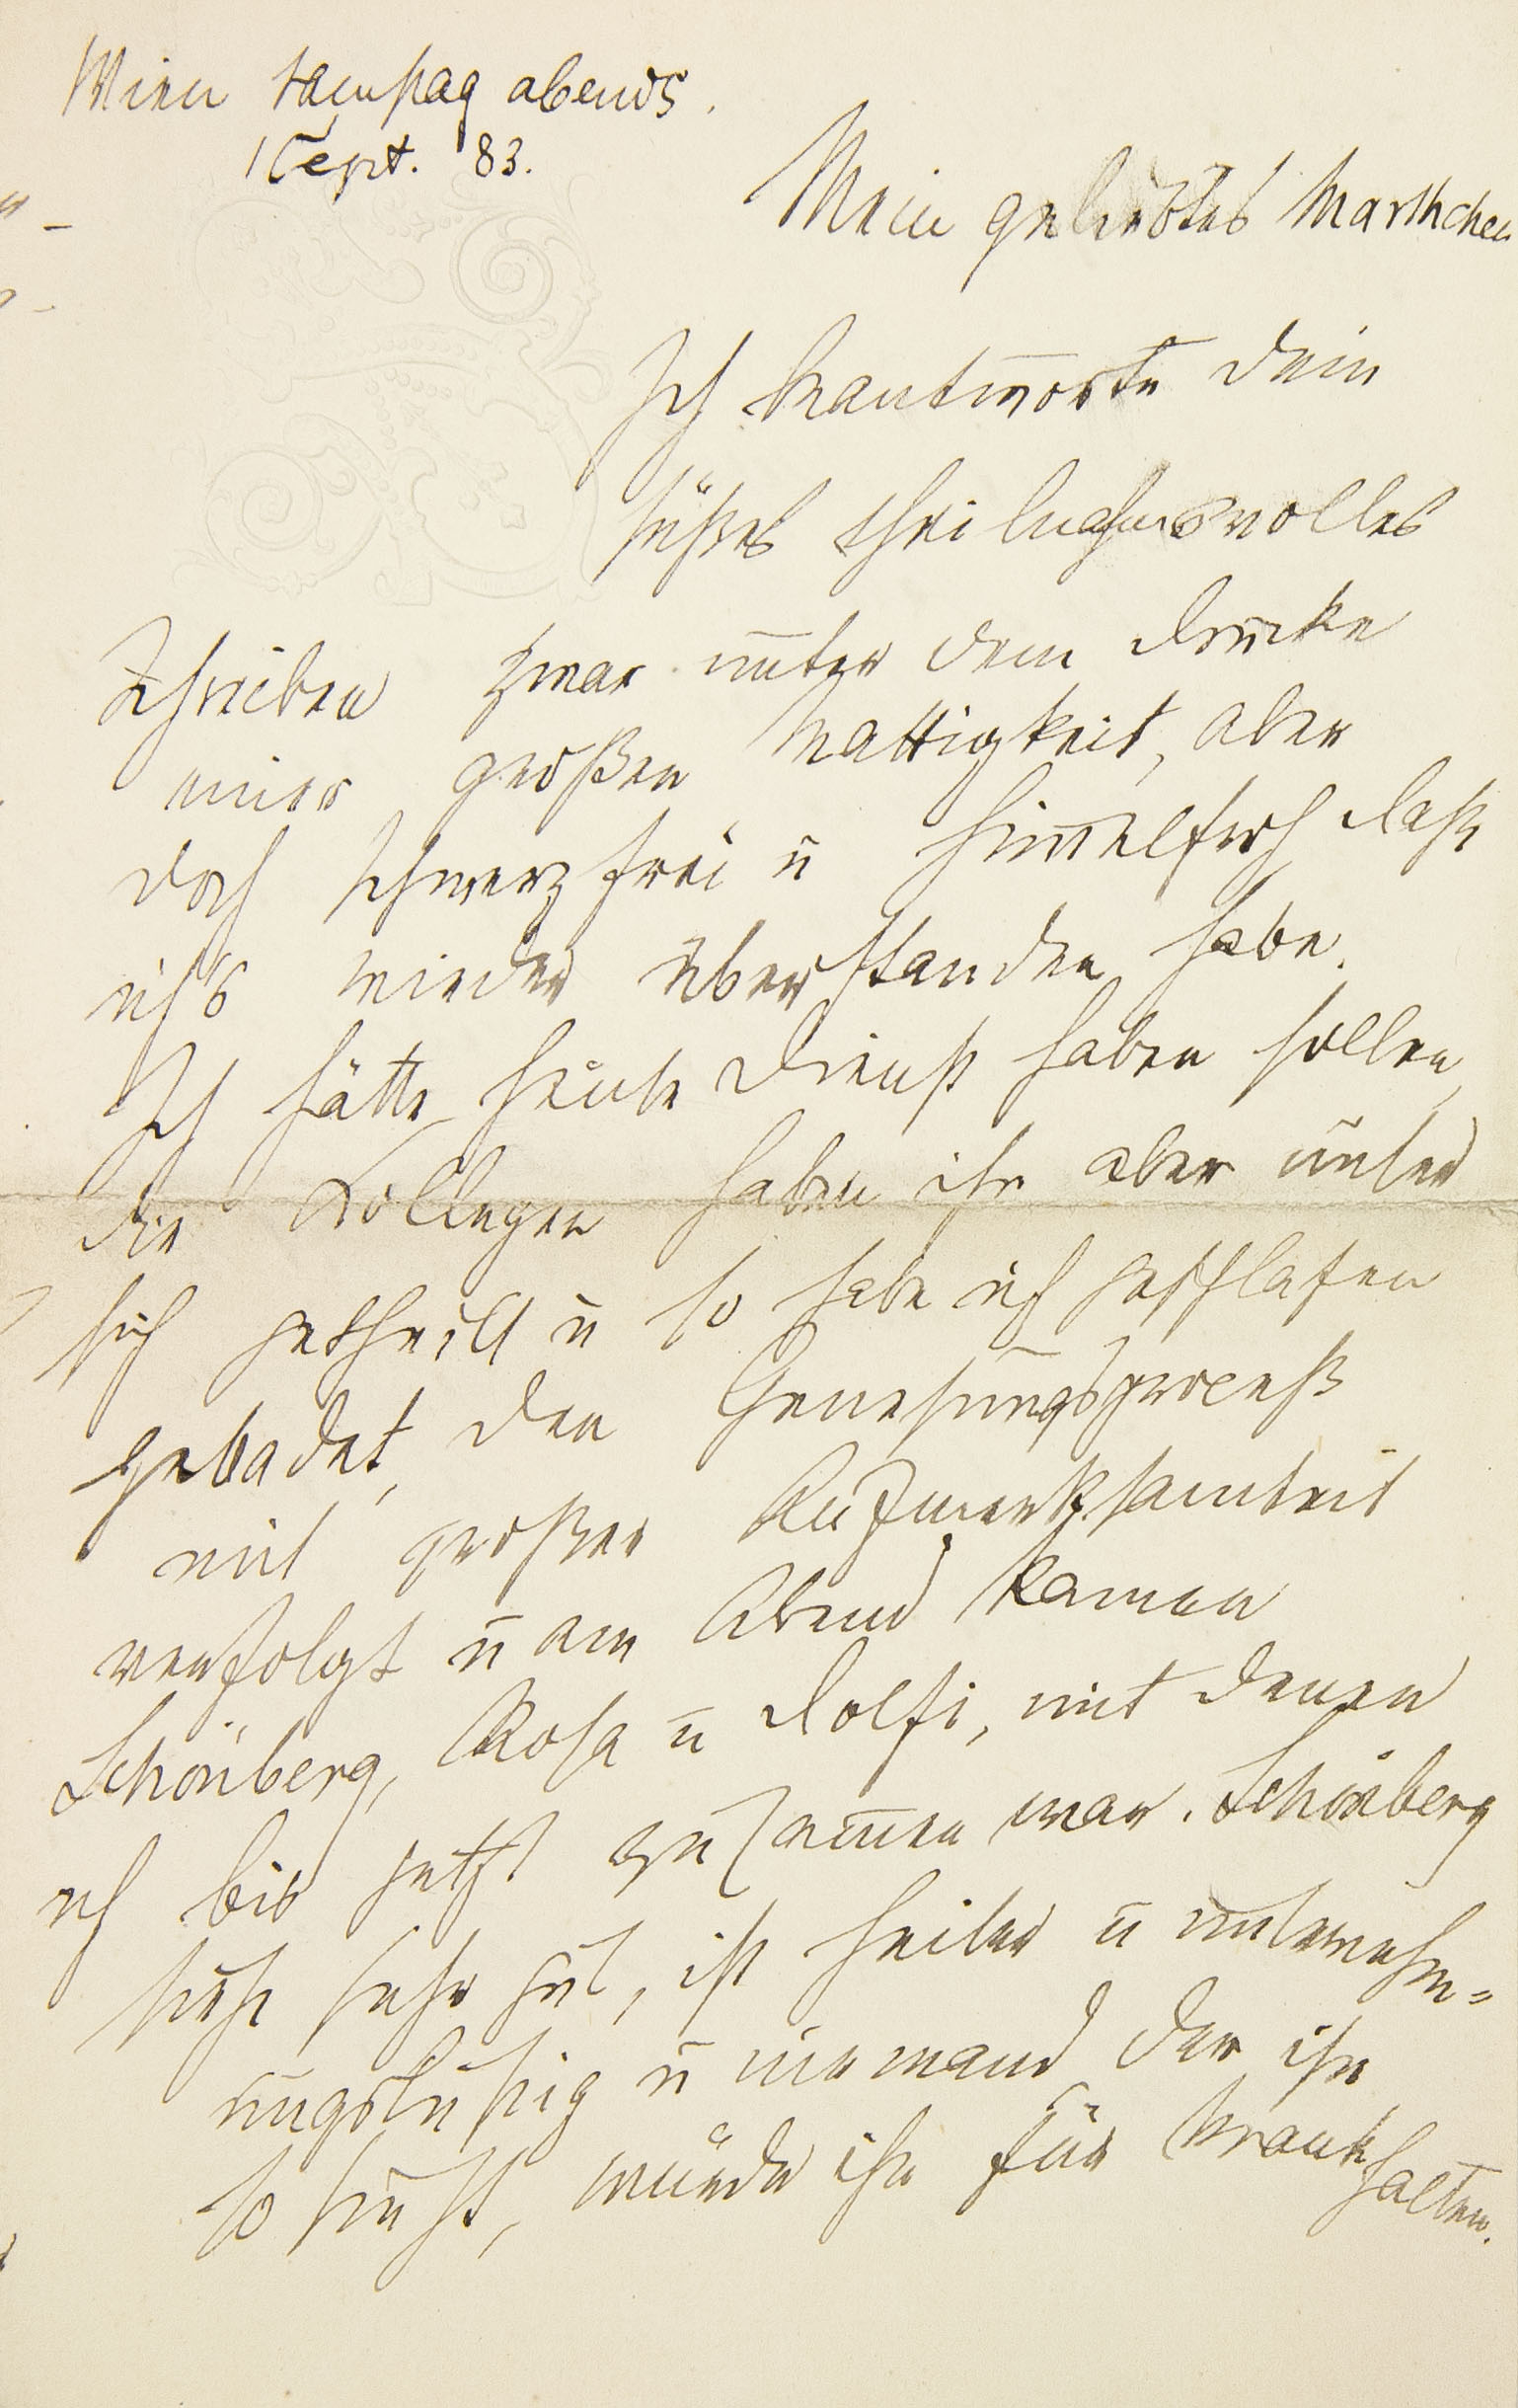 Wien Samstag abends.
1 Sept. 83.
Mein geliebtes Marthchen
Ich beantworte Dein
süßes theilnahmsvolles
Schreiben zwar unter dem Drucke
einer großen Mattigkeit, aber
doch schmerzfrei u himmelfroh daß
ich's wieder überstanden habe.
Ich hätte heute Dienst haben sollen,
die Kollegen haben ihn aber unter
sich getheilt u so habe ich geschlafen
gebadet, den Genesungsproceß
mit großer Aufmerksamkeit
verfolgt u am Abend kamen
Schönberg, Rosa u Dolfi, mit denen
ich bis jetzt zusam̅en war. Schönberg
sieht sehr gut, ist heiter u unternehm=
ungslustig u niemand der ihn
so sieht, würde ihn für krank halten.